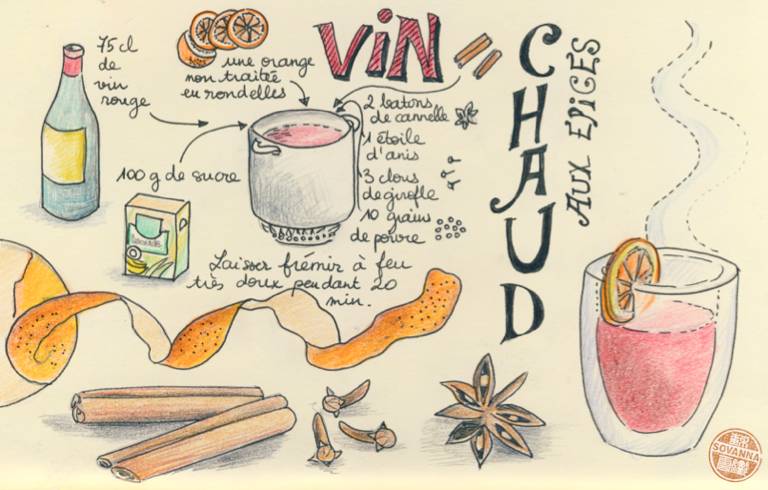 ViN
CHAUD
AUX ÉPiCES
75 cl
de
vin
rouge
une orange
non traitée
en rondelles
2 batons
de cannelle
1 étoile
d'anis
3 clous
de girofle
10 grains
de poivre
100 g de sucre
Laisser frémir à feu
très doux pendant 20
min.
SOVANNA